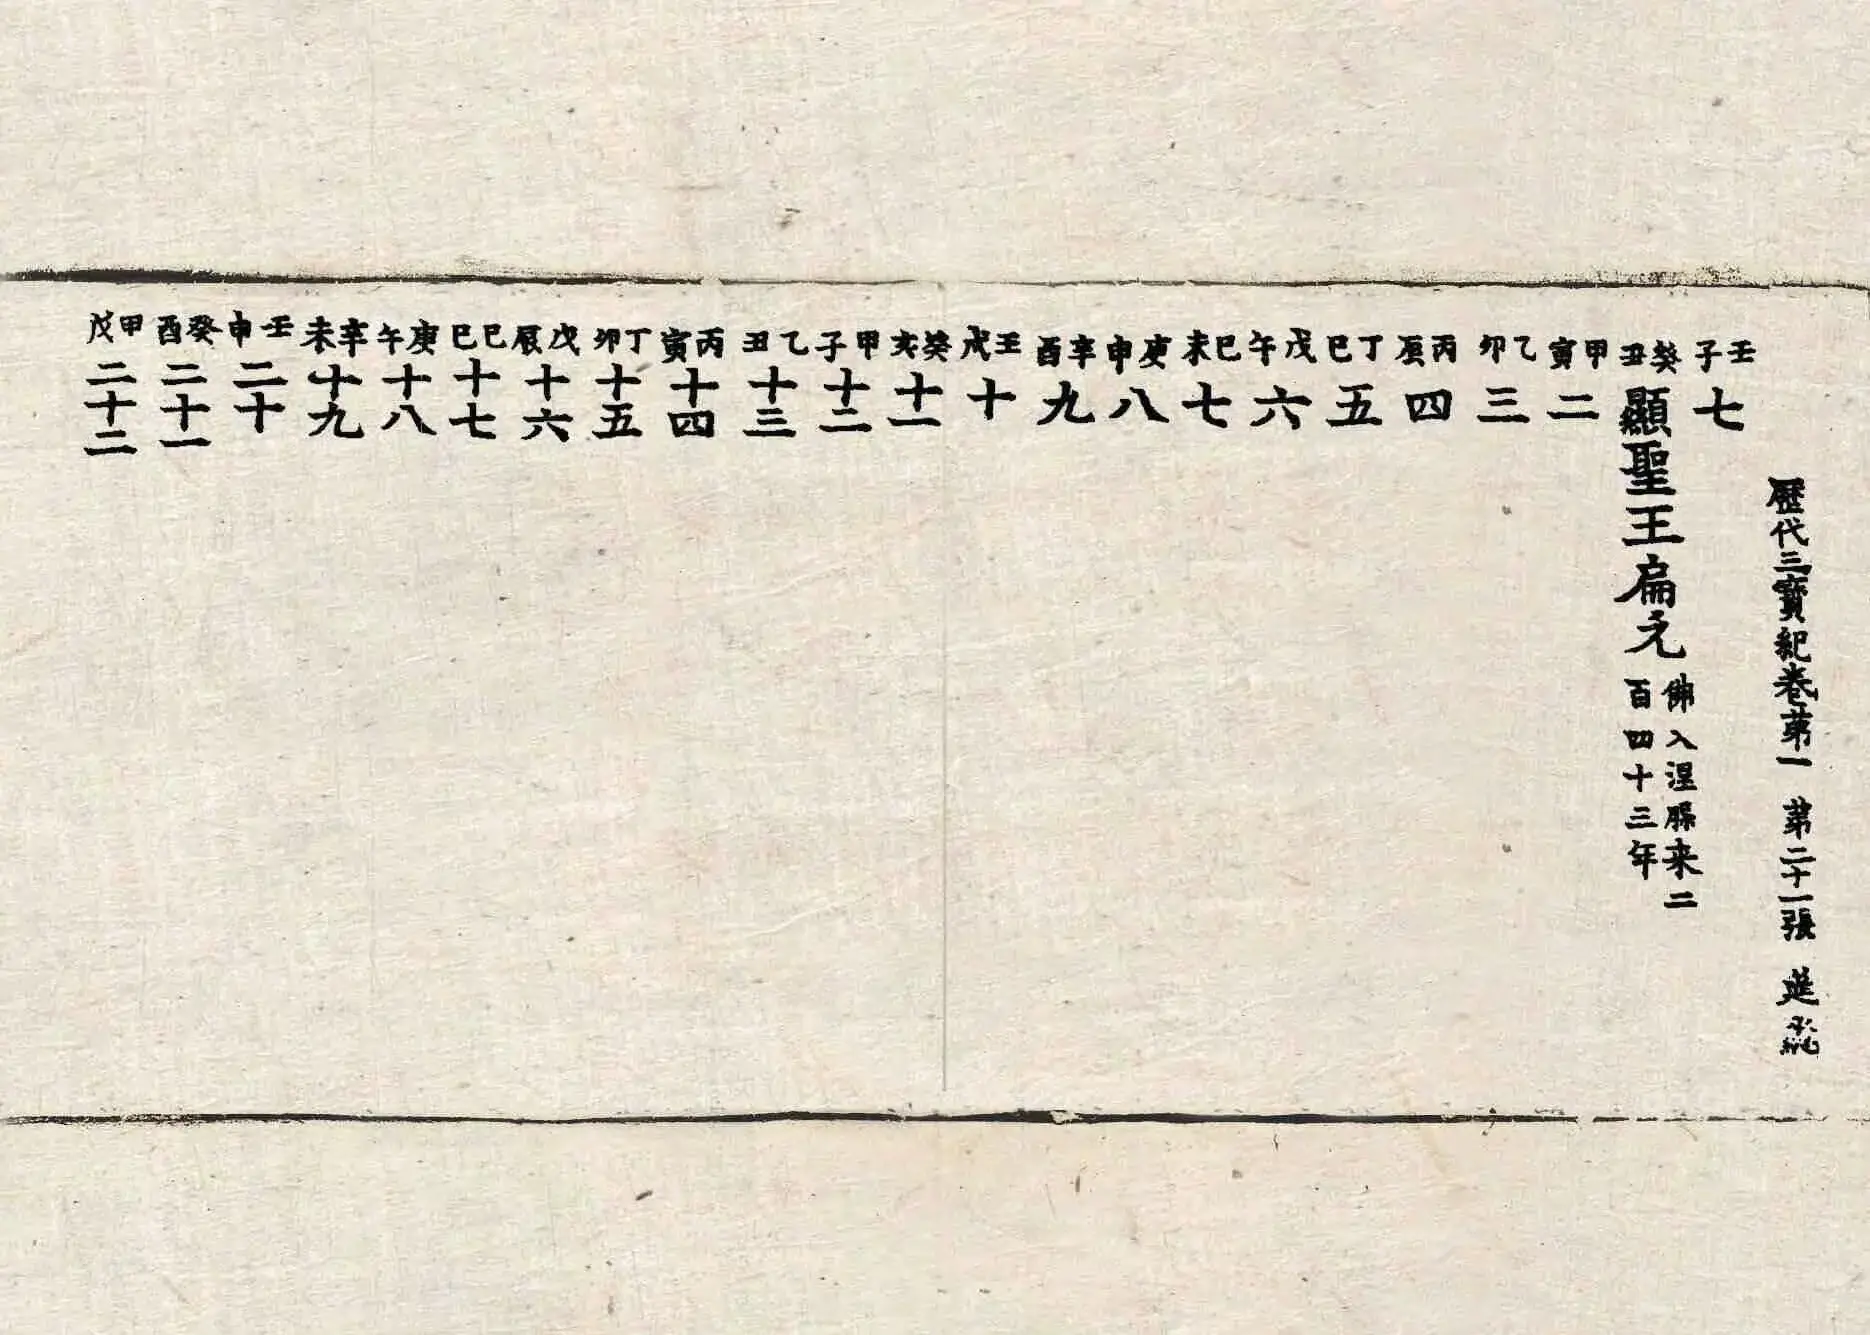 歷代三寶紀卷第一 第二十一張
壬子七
癸丑顯聖王扁元 佛入涅槃来二
百四十三年
甲寅二
乙卯三
丙辰四
丁巳五
戊午六
己未七
庚申八
辛酉九
壬戌十
癸亥十一
甲子十二
乙丑十三
丙寅十四
丁卯十五
戊辰十六
己巳十七
庚午十八
辛未十九
壬申二十
癸酉二十一
甲戌二十二